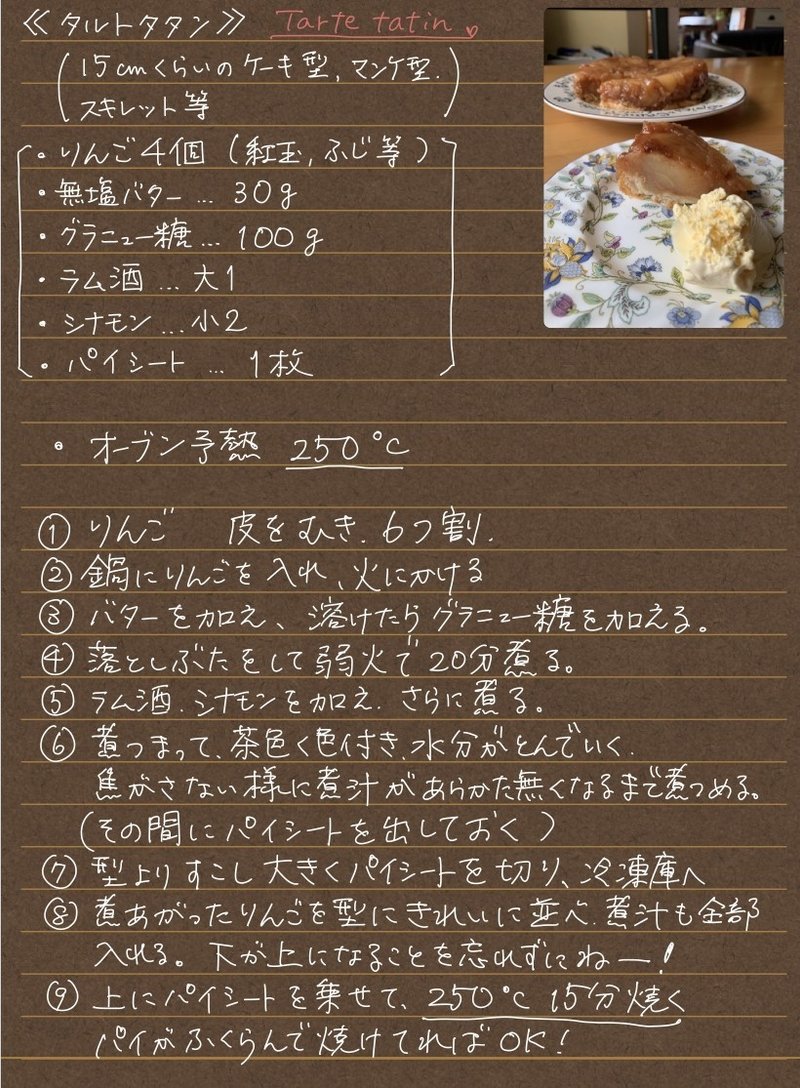 ≪タルトタタン≫ Tarte tatin
(15cmくらいのケーキ型,マンケ型.
スキレット等)
・りんご4個 (紅玉,ふじ等)
・無塩バター… 30g
・グラニュー糖… 100g
・ラム酒 … 大1
・シナモン … 小2
・パイシート … 1枚
・オーブン予熱 250℃
① りんご 皮をむき.6つ割.
② 鍋にりんごを入れ、火にかける
③ バターを加え、溶けたらグラニュー糖を加える。
④ 落としぶたをして弱火で20分煮る。
⑤ ラム酒.シナモンを加え.さらに煮る。
⑥ 煮つまって、茶色く色付き、水分がとんでいく.
焦がさない様に煮汁があらかた無くなるまで煮つめる。
(その間にパイシートを出しておく)
⑦ 型よりすこし大きくパイシートを切り、冷凍庫へ
⑧ 煮あがったりんごを型にきれいに並べ.煮汁も全部
入れる。下が上になることを忘れずにねー!
⑨ 上にパイシートを乗せて、250℃ 15分焼く
パイがふくらんで焼けてればOK!